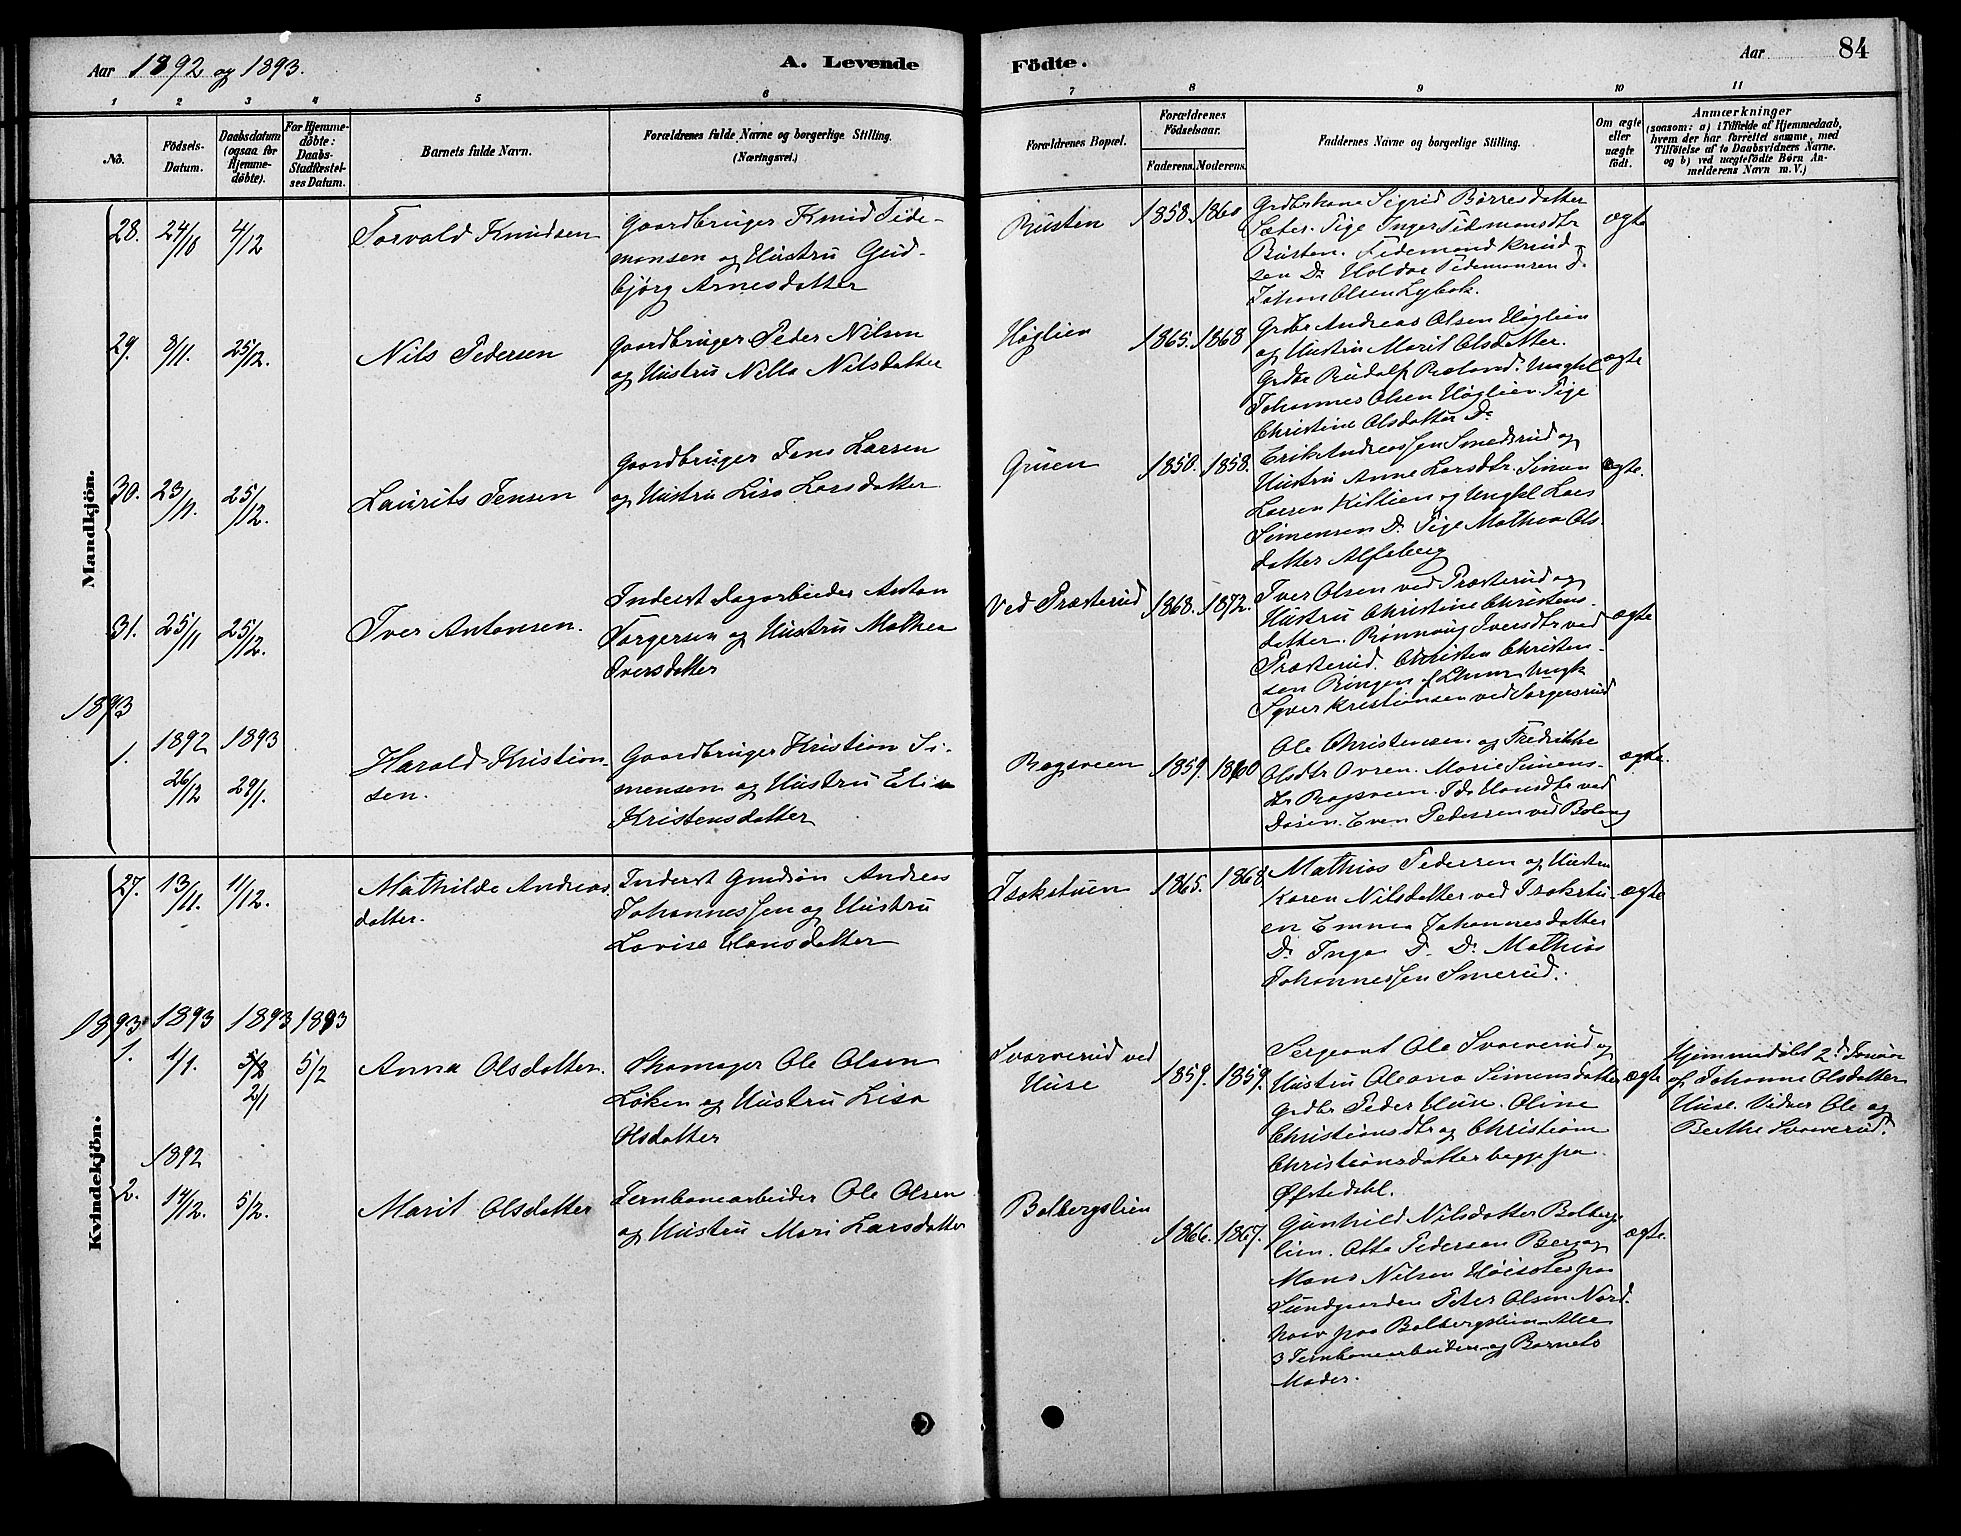 Aar 1892 og 1893.
A. Levende
Födte.
Aar
84
1 2 3 4 5 6 7 8 9 10 11
No.
Födsels-
Datum.
Daabsdatum
(ogsaa for
Hjemme-
döbte).
For Hjemme-
döbte:
Daabs-
Stadfæstel-
ses Datum.
Barnets fulde Navn.
Forældrenes fulde Navne og borgerlige Stilling.
(Næringsvei.)
Forældrenes Bopæl.
Forældrenes
Födselsaar.
Faderens. Moderens.
Faddernes Navne og borgerlige Stilling.
Om ægte
eller
uægte
födt.
Anmærkninger
(saasom: a) i Tilfælde af Hjemmedaab,
hvem der har forrettet samme, med
Tilföielse af to Daabsvidners Navne.
og b) ved uægtefödte Börn An-
melderens Navn m. V.)
Mandkjön.
28. 24/10 4/12
Torvald Knudsen
Gaardbruger Knud Tide-
mansen og Hustru Gud-
bjørg Arnesdatter
Rusten
1858. 1860
Grdbrkone Sigrid Børresdatter
Sæter. Pige Inger Tidemansdtr
Rusten. Tidemand Knud-
sen Do Haldor Tidemansen Do
Johan Olsen Lybek.
ægte
29. 8/11. 25/12.
Nils Pedersen
Gaardbruger Peder Nilsen
og Hustru Nille Nilsdatter
Høglien
1865. 1868
Grdbr Andreas Olsen Høglien
og Hustru Marit Olsdatter.
Grdbr Rudolf Ræland. Ungkl
Johannes Olsen Høglien. Pige
Christine Olsdatter Do
ægte
30. 23/11. 25/12.
Laurits Jensen
Gaardbruger Jens Larsen
og Hustru Lisa Larsdatter
Gruen
1850. 1858.
Erik Andreassen Smedsrud og
Hustru Anne Larsdtr. Simon
Larsen Killien og Ungkl Lars
Simensen Do Pige Mathea Ols-
datter Alfsberg
ægte.
31. 25/11 25/12.
Iver Antonsen.
Inderst Dagarbeider Anton
Torgersen og Hustru Mathea
Iversdatter
Ved Præsterud
1868. 1872.
Iver Olsen ved Præsterud og
Hustru Christine Christens-
datter. Rønnaug Iversdtr ved
Præsterud. Christen Christen-
sen Ringen f Lunn Ungk
Syver Kristiansen ved Sorgersrud
ægte
1893
1. 1892 26/12 1893 29/1.
Harald Kristian-
sen.
Gaardbruger Kristian Si-
mensen og Hustru Elise
Kristensdatter
Bagsveen
1859. 1860
Ole Christensen og Fredrikke
Olsdtr Ovren. Marie Simens-
dtr Bagsveen. Ida Hansdtr ved
Dosen. Even Pedersen ved Bolang
ægte.
Kvindekjön.
27. 13/11. 11/12.
Mathilde Andreas
datter.
Inderst Gmdsön Andreas
Johannessen og Hustru
Lovise Hansdatter
Isakstuen
1865. 1868
Mathias Pedersen og Hustru
Karen Nilsdatter ved Isakstu-
en Emma Johannesdatter
Do Inga Do Do Mathias
Johannessen Smerud.
ægte
1893.
1. 1893 1/1. 1893 5/2 2/1 1893 5/2
Anna Olsdatter.
Skomager Ole Olsen
Løken og Hustru Lisa
Olsdatter
Svarverud ved
Huse
1859. 1859.
Sergeant Ole Svarverud og
Hustru Oleana Simensdatter
Grdbr Peder Huse. Oline
Christiansdtr og Christiane
Christiansdatter begge paa
Øfstedahl.
ægte
Hjemmedøbt 2d Januar
af Johanne Olsdatter
Huse. Vidner Ole og
Berthe Svarverud.
2. 1892 14/12. 5/2.
Marit Olsdatter
Jernbanearbeider Ole Olsen
og Hustru Mari Larsdatter
Bolbergslien
1866. 1867.
Gunhild Nilsdatter Bolbergs-
lien. Otto Pedersen Berg og
Mons Nilsen Høisæter paa
Sundgaarden Peter Olsen Nord-
hare paa Bolbergslien Alle
3 Jernbanearbeidere og Barnets
Moder.
ægte.